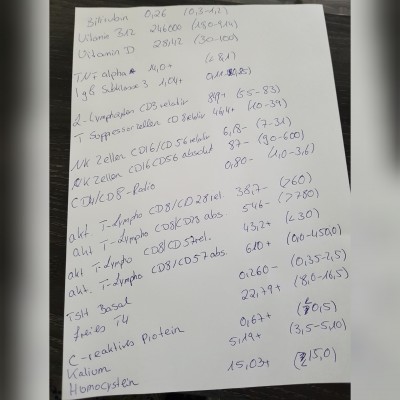 Bilirubin 0,26 (0,3-1,2)
Vitamin B12 246000 (180-914)
Vitamin D 28,42 (30-100)
TNF alpha 14,0+ (<8,1)
IgG Subklasse 3 1,04+
T-Lymphozyten CD3 relativ 84+ (55-83)
T Suppressorzellen CD8 relativ 46,4+ (10-39)
NK Zellen CD16/CD56 relativ 6,18- (7-31)
NK Zellen CD16CD56 absolut 87- (90-600)
CD4/CD8-Ratio 0,80- (1,0-3,6)
akt T-Lympho CD8/CD28 rel. 38,7- (>60)
akt T-Lympho CD8/CD28 abs. 546- (>780)
akt T-Lympho CD8/CD57 rel. 43,2+ (<30)
akt. T-Lympho CD8/CD57 abs. 610+ (0,0-450,0)
TSH Basal 0,260- (0,35-2,5)
freies T4 22,79+ (8,0-16,5)
C-reaktives Protein 0,67+ (<0,5)
Kalium 5,19+ (3,5-5,10)
Homocystein 15,03+ 15,0)